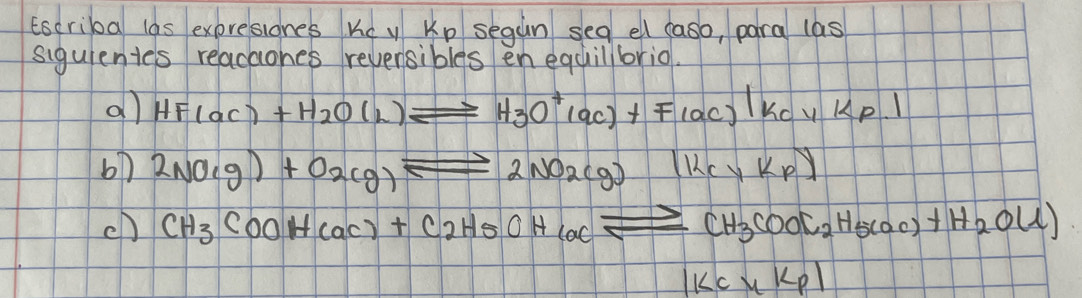 Escriba las expresiones Kc y Kp según sea el caso, para las
siguientes reacciones reversibles en equilibrio.
a) HF(ac) + H2O(L) ⇌ H3O⁺(ac) + F(ac) |Kc y Kp.|
b) 2NO(g) + O2(g) ⇌ 2NO2(g) |Kc y Kp|
c) CH3COOH(ac) + C2H5OH(ac ⇌ CH3COOC2H5(ac) + H2O(L)
|Kc y Kp|